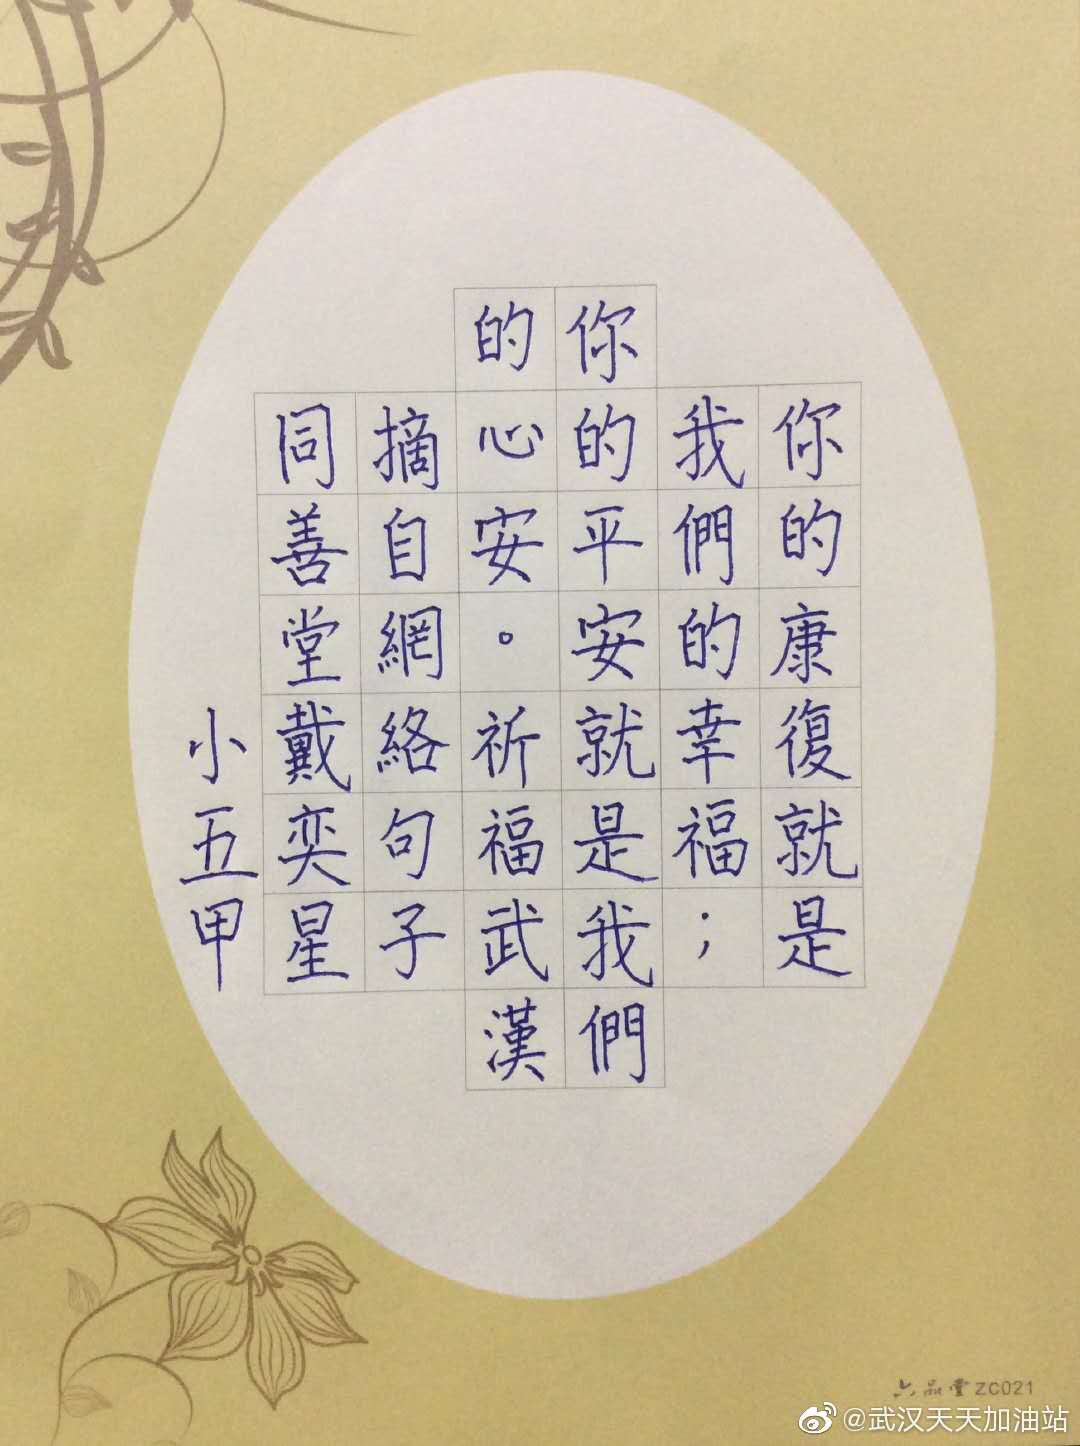 你的康復就是
我們的幸福；
你的平安就是我們
的心安。祈福武漢
摘自網絡句子
同善堂戴奕星
小五甲
六品堂 ZC021
@武汉天天加油站